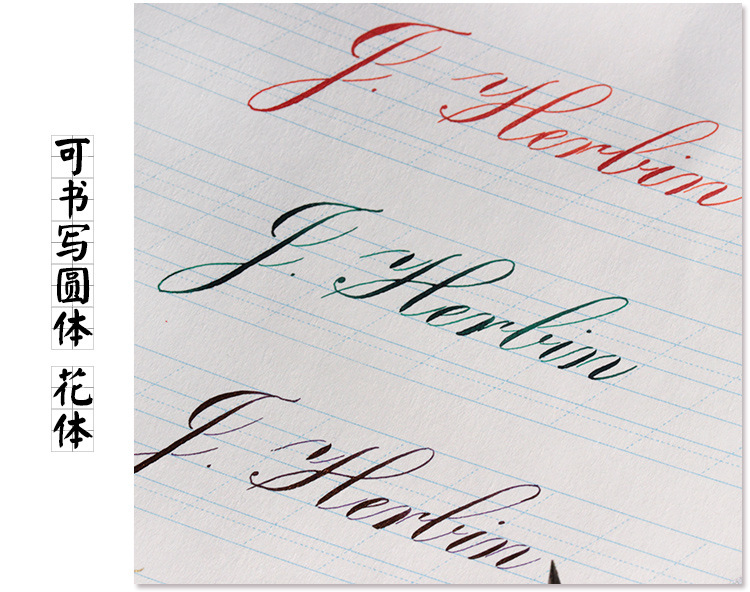 可书写圆体 花体
J. Herbin
J. Herbin
J. Herbin